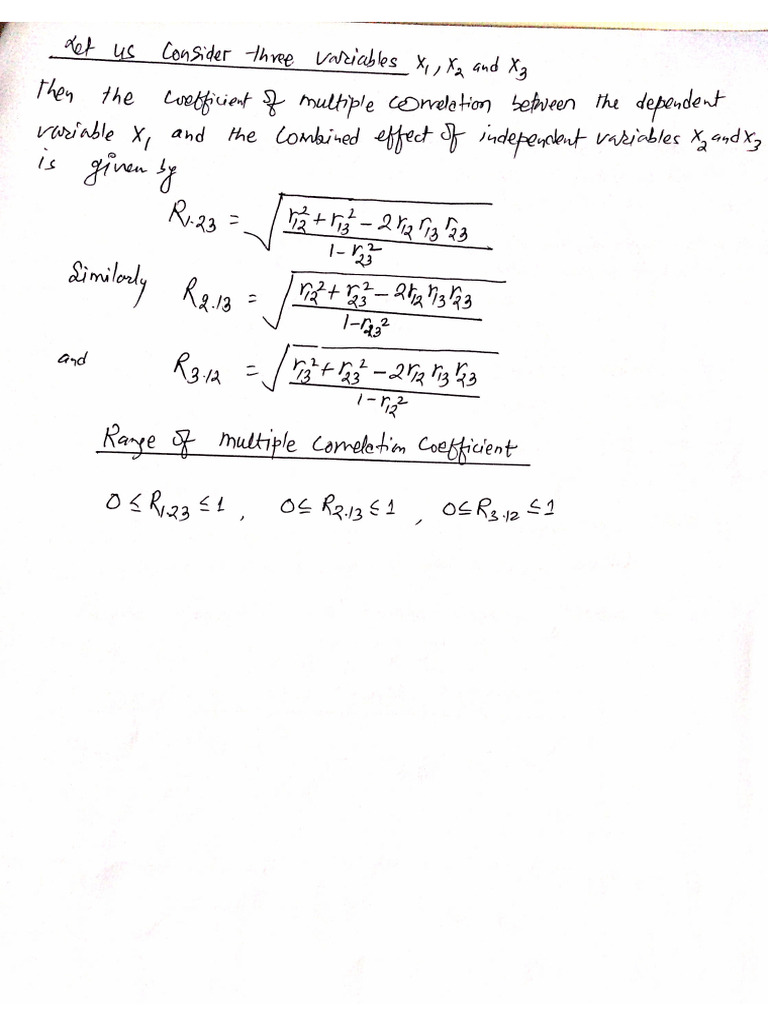 Let us Consider three variables X₁, X₂ and X₃
then the coefficient of multiple correlation between the dependent
variable X₁ and the combined effect of independent variables X₂ and X₃
is given by
R₁.₂₃ = √((r₁₂² + r₁₃² - 2r₁₂ r₁₃ r₂₃) / (1 - r₂₃²))
Similarly R₂.₁₃ = √((r₁₂² + r₂₃² - 2r₁₂ r₁₃ r₂₃) / (1 - r₂₃²))
and R₃.₁₂ = √((r₁₃² + r₂₃² - 2r₁₂ r₁₃ r₂₃) / (1 - r₁₂²))
Range of multiple Correlation Coefficient
0 ≤ R₁.₂₃ ≤ 1, 0 ≤ R₂.₁₃ ≤ 1, 0 ≤ R₃.₁₂ ≤ 1